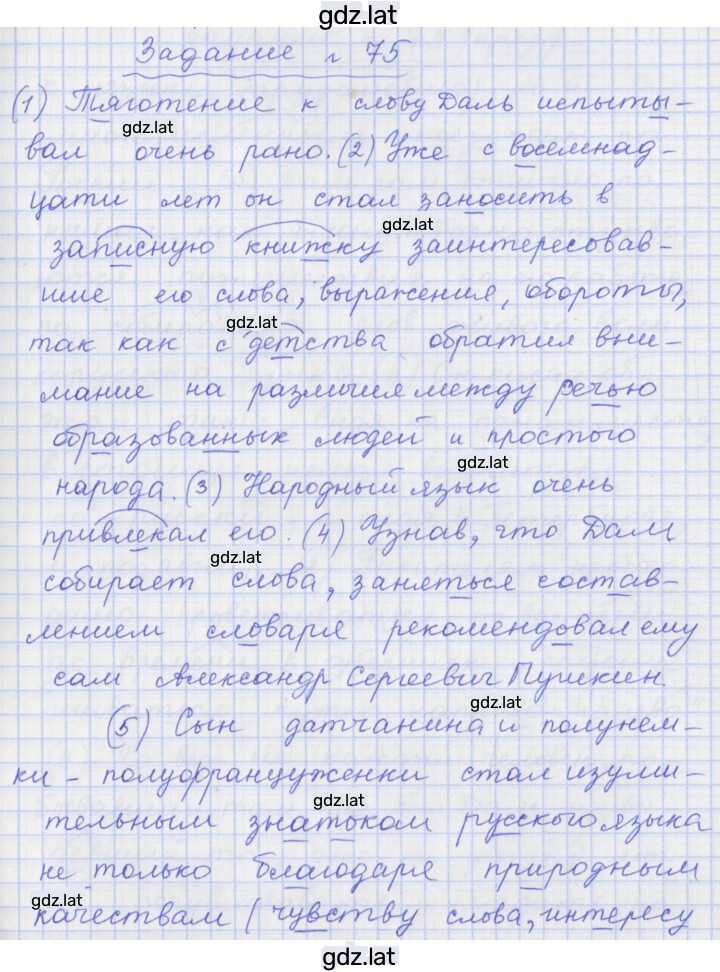 gdz.lat
Задание № 75
(1) Тяготение к слову Даль испыты-
gdz.lat
вал очень рано. (2) Уже с восемнад-
цати лет он стал заносить в
gdz.lat
записную книжку заинтересовав-
шие его слова, выражения, обороты,
gdz.lat
так как с детства обратил вни-
мание на различия между речью
образованных людей и простого
gdz.lat
народа. (3) Народный язык очень
привлекал его. (4) Узнав, что Даль
gdz.lat
собирает слова, заняться состав-
лением словаря рекомендовал ему
сам Александр Сергеевич Пушкин.
gdz.lat
(5) Сын датчанина и полунем-
ки - полуфранцуженки стал изуми-
gdz.lat
тельным знатоком русского языка
не только благодаря природным
gdz.lat
качествам (чувству слова, интересу
gdz.lat